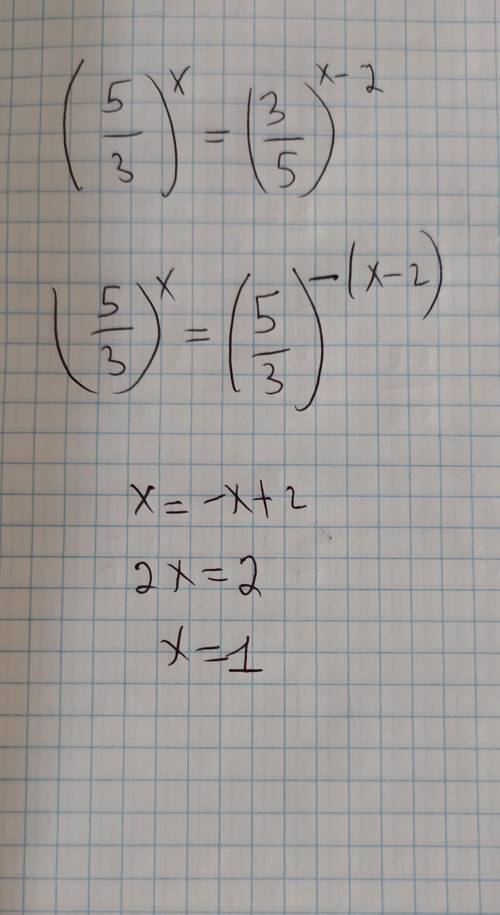 (5/3)^x = (3/5)^(x-2)
(5/3)^x = (5/3)^-(x-2)
x = -x+2
2x = 2
x = 1